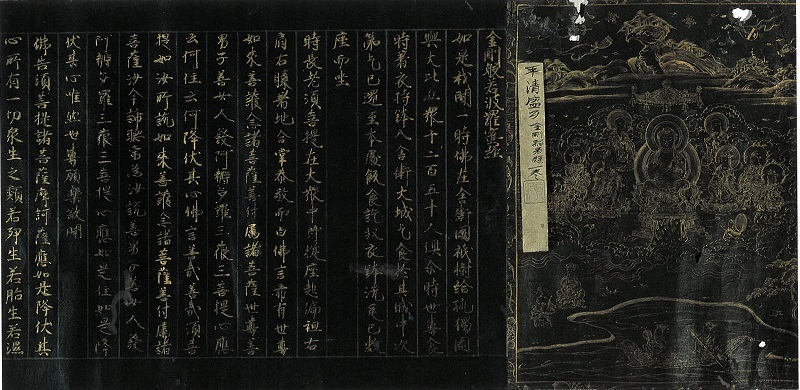 平清盛
金剛般若経 一巻
金剛般若波羅蜜經
如是我聞一時佛在舍衛國祇樹給孤獨園
與大比丘衆千二百五十人俱尒時世尊食
時著衣持鉢入舍衛大城乞食於其城中次
第乞已還至本處飯食訖收衣鉢洗足已敷
座而坐
時長老須菩提在大衆中即從座起偏袒右
肩右膝著地合掌恭敬而白佛言希有世尊
如來善護念諸菩薩善付属諸菩薩世尊善
男子善女人發阿耨多羅三藐三菩提心應
云何住云何降伏其心佛言善哉善哉須菩
提如汝所說如來善護念諸菩薩善付属諸
菩薩汝今諦聽當為汝說善男子善女人發
阿耨多羅三藐三菩提心應如是住如是降
伏其心唯然世尊願樂欲聞
佛告須菩提諸菩薩摩訶薩應如是降伏其
心所有一切衆生之類若卵生若胎生若濕